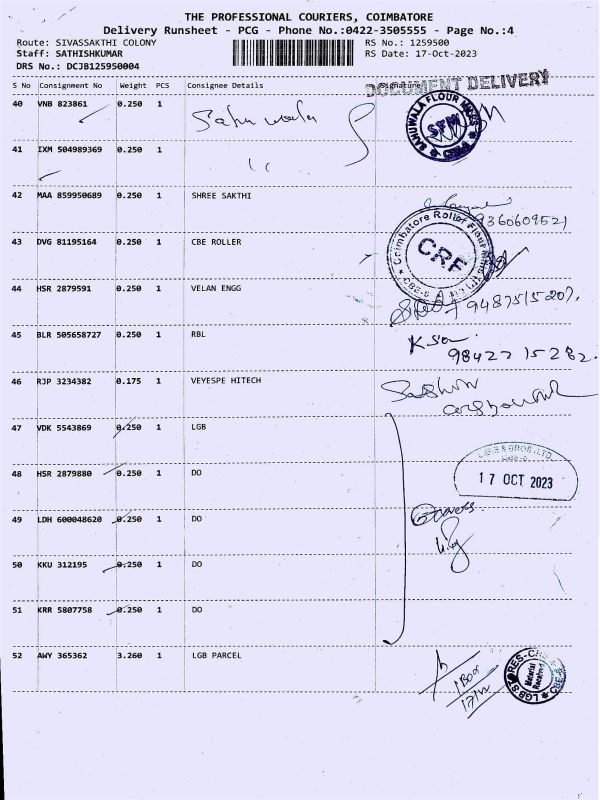 THE PROFESSIONAL COURIERS, COIMBATORE
Delivery Runsheet - PCG - Phone No.:0422-3505555 - Page No.:4
Route: SIVASSAKTHI COLONY RS No.: 1259500
Staff: SATHISHKUMAR RS Date: 17-Oct-2023
DRS No.: DCJB125950004
S No Consignment No Weight PCS Consignee Details Signature
DOCUMENT DELIVERY
40 VNB 823861 0.250 1
SAHUWALA FLOUR MILLS
SFM
41 IXM 504989369 0.250 1
42 MAA 859950689 0.250 1 SHREE SAKTHI
9360609521
43 DVG 81195164 0.250 1 CBE ROLLER
Coimbatore Roller Flour Mills
CRF
44 HSR 2879591 0.250 1 VELAN ENGG
9487515207.
45 BLR 505658727 0.250 1 RBL
98422 15282.
46 RJP 3234382 0.175 1 VEYESPE HITECH
47 VDK 5543869 0.250 1 LGB
L.G.B & BROS. LTD
48 HSR 2879880 0.250 1 DO
17 OCT 2023
49 LDH 600048620 0.250 1 DO
50 KKU 312195 0.250 1 DO
51 KRR 5807758 0.250 1 DO
52 AWY 365362 3.260 1 LGB PARCEL
LGB STORES-CR
Material
Received